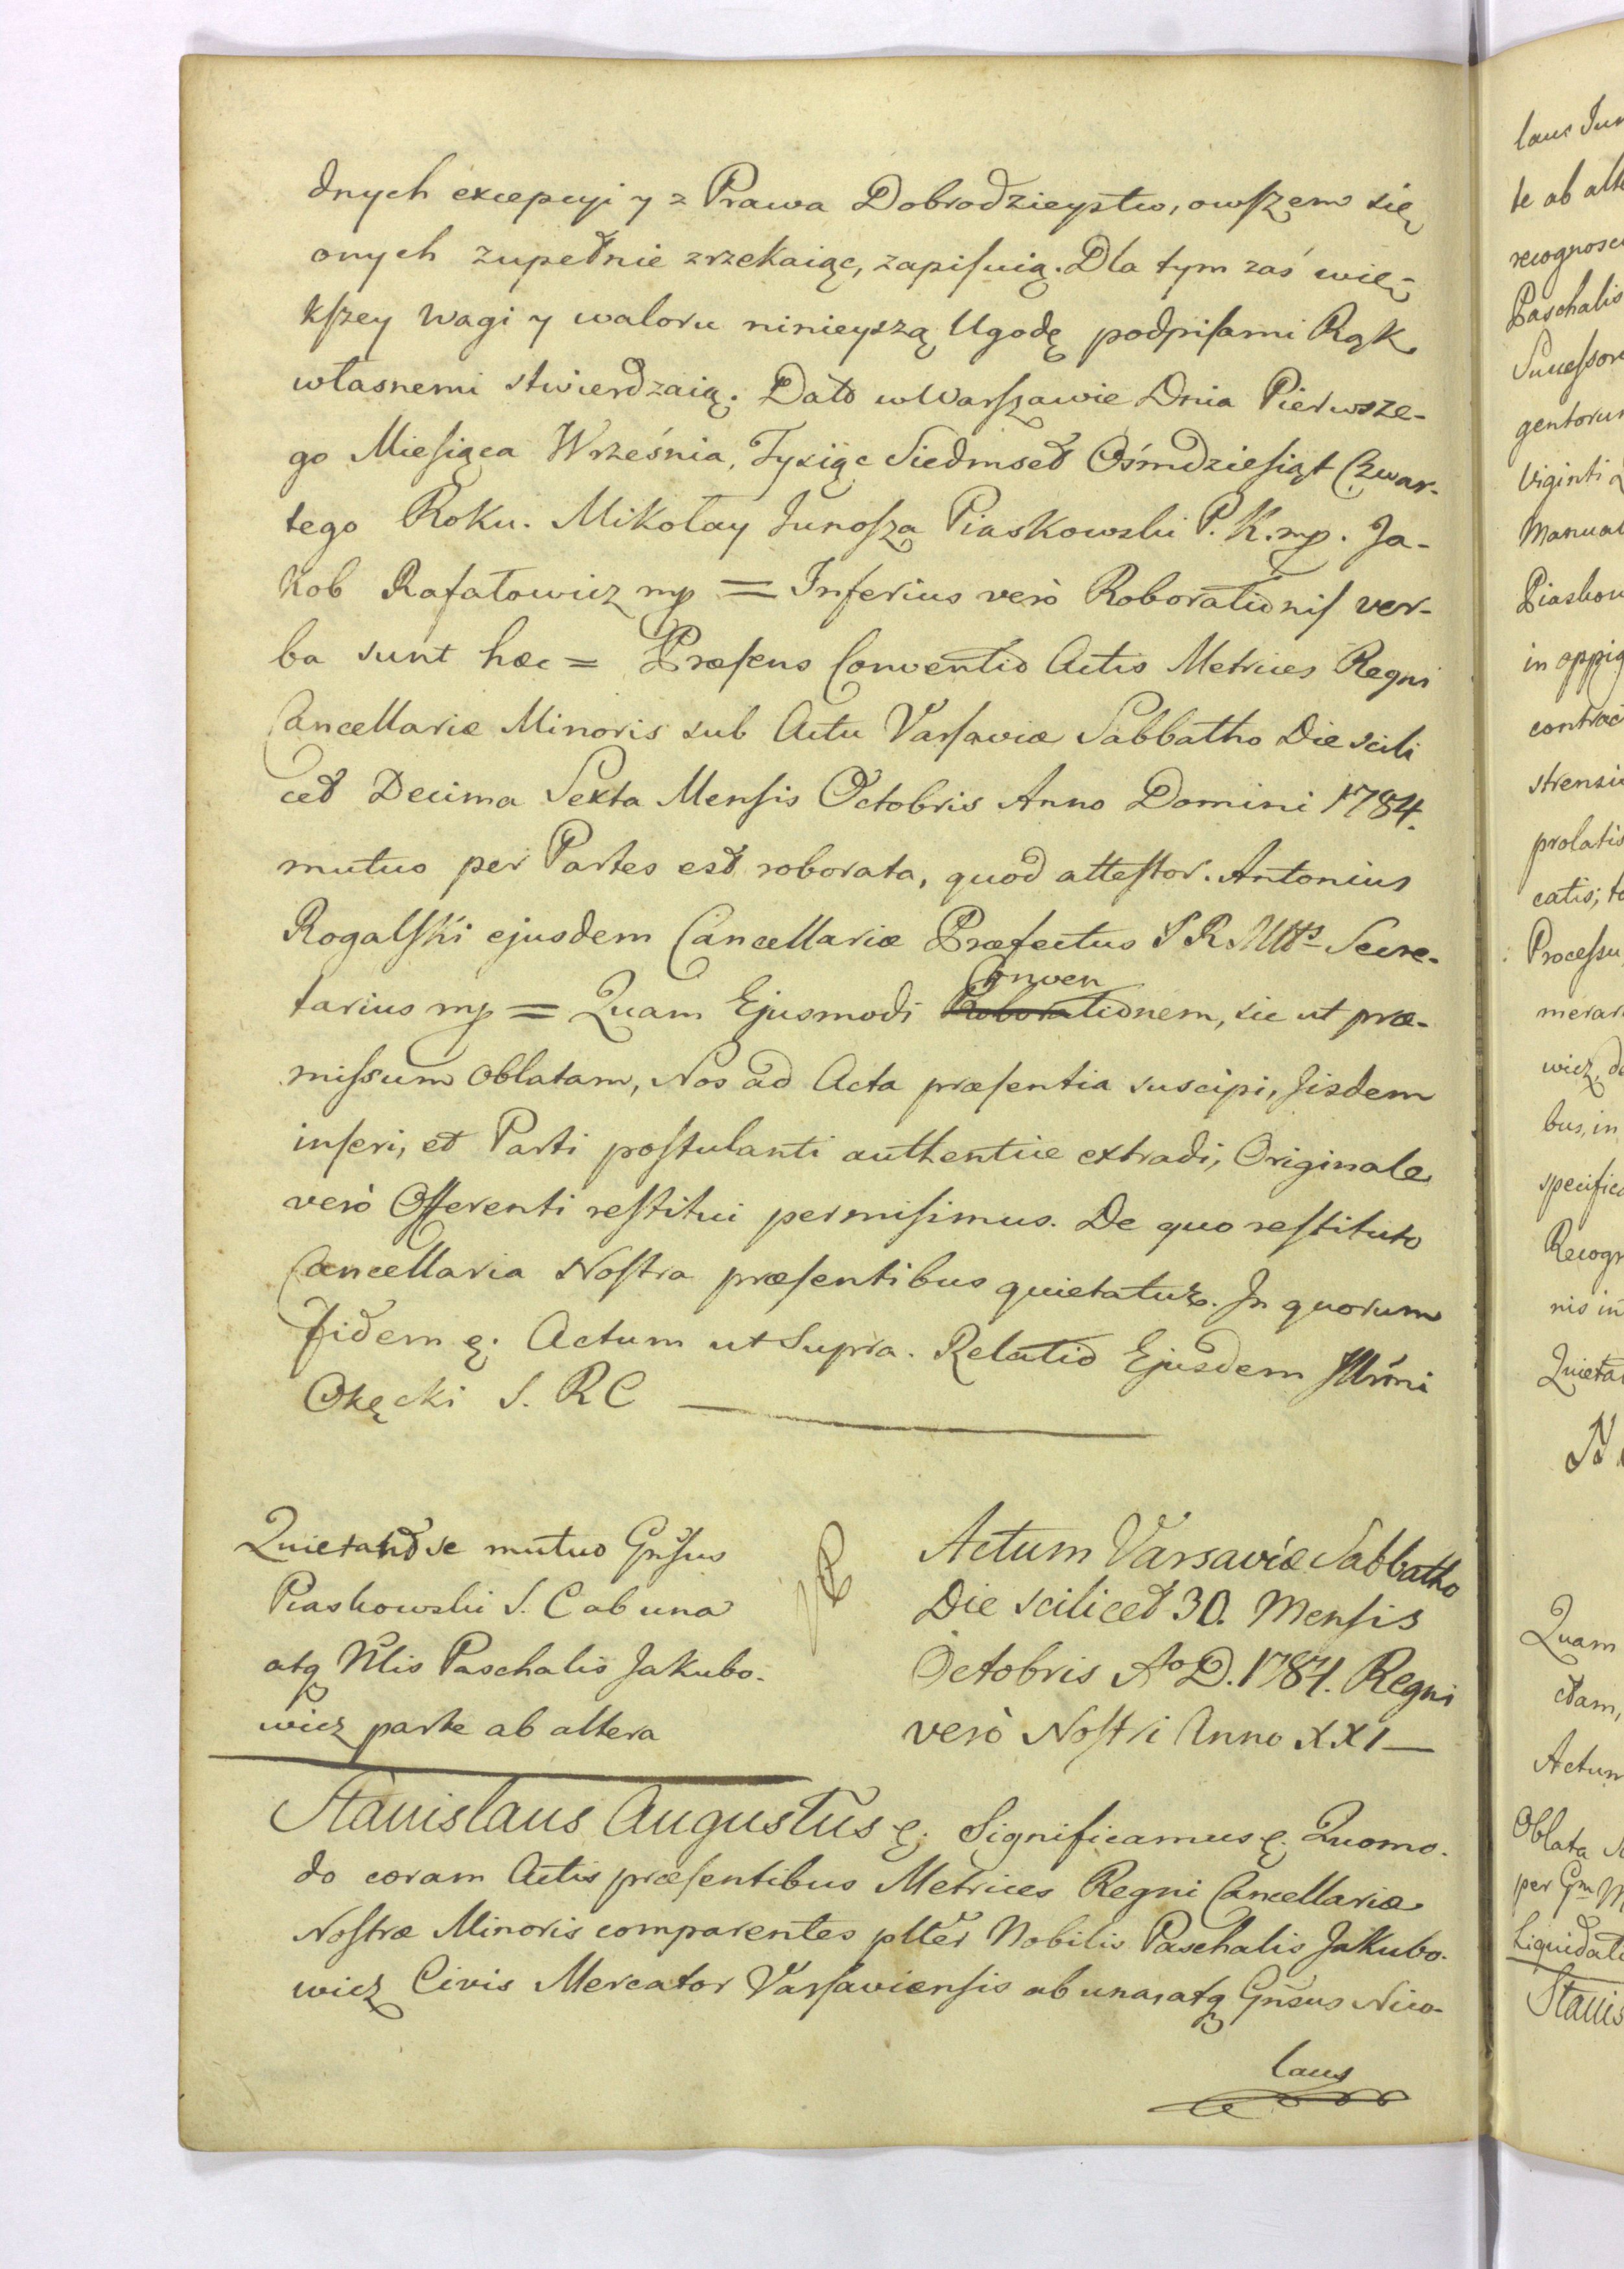 dnych excepcyi y z Prawa Dobrodzieystw, owszem się
onych zupełnie zrzekaiąc, zapisuią. Dla tym zaś wię-
kszey wagi y waloru ninieyszą Ugodę podpisami Rąk
własnemi stwierdzaią. Dato w Warszawie Dnia Pierwsze-
go Miesiąca Września, Tysiąc Siedmset Ośmdziesiąt Czwar-
tego Roku. Mikołay Junosza Piaskowski P. K. mp. Ja-
kob Rafałowicz mp = Inferius verò Roborationis ver-
ba sunt hæc = Præsens Conventio Actis Metrices Regni
Cancellariæ Minoris sub Actu Varsaviæ Sabbatho Die scili
cet Decima Sexta Mensis Octobris Anno Domini 1784.
mutuo per Partes est roborata, quod attestor. Antonius
Rogalski ejusdem Cancellariæ Præfectus S R Mttis Secre-
Conven
tarius mp = Quam Ejusmodi Roborationem, sic ut præ-
missum oblatam, Nos ad Acta præsentia suscipi, Iisdem
inseri, et Parti postulanti authentice extradi, Originale
verò Offerenti restitui permisimus. De quo restituto
Cancellaria Nostra præsentibus quietatur. In quorum
Fidem ę. Actum ut Supra. Relatio Ejusdem Illrmi
Okęcki S. R C
Quietant se mutuo Gnsus
Piaskowski S. C ab una
atq Nlis Paschalis Jakubo-
wicz parte ab altera
Actum Varsaviæ Sabbatho
Die scilicet 30. Mensis
Octobris Ao D. 1784. Regni
verò Nostri Anno XXI
Stanislaus Augustus ę. Significamus ę. Quomo-
do coram Actis præsentibus Metrices Regni Cancellariæ
Nostræ Minoris comparentes pltėr Nobilis Paschalis Jakubo-
wicz Civis Mercator Varsaviensis ab una, atq Gnsus Nico-
laus
laus Jun
te ab alt
recognosc
Paschalis
Successor
gentorum
Viginti
Manual
Piaskow
in oppig
contrac
strensi
prolatis
catis; t
Processu
merar
wicz, d
bus, in
specific
Recogn
nis in
Quieta
Quam
ctam,
Actum
Oblata
per Gm M
Liquidat
Stanis